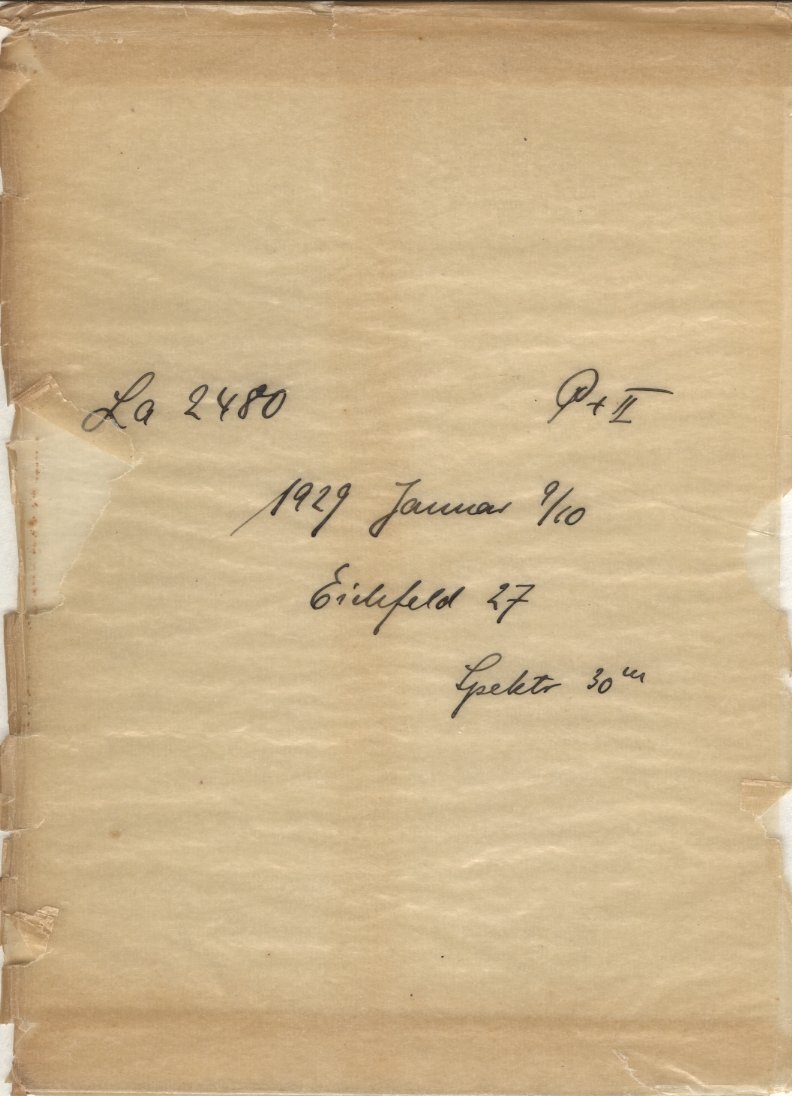 La 2480 P+II
1929 Januar 9/10
Eichfeld 27
Spektr 30m